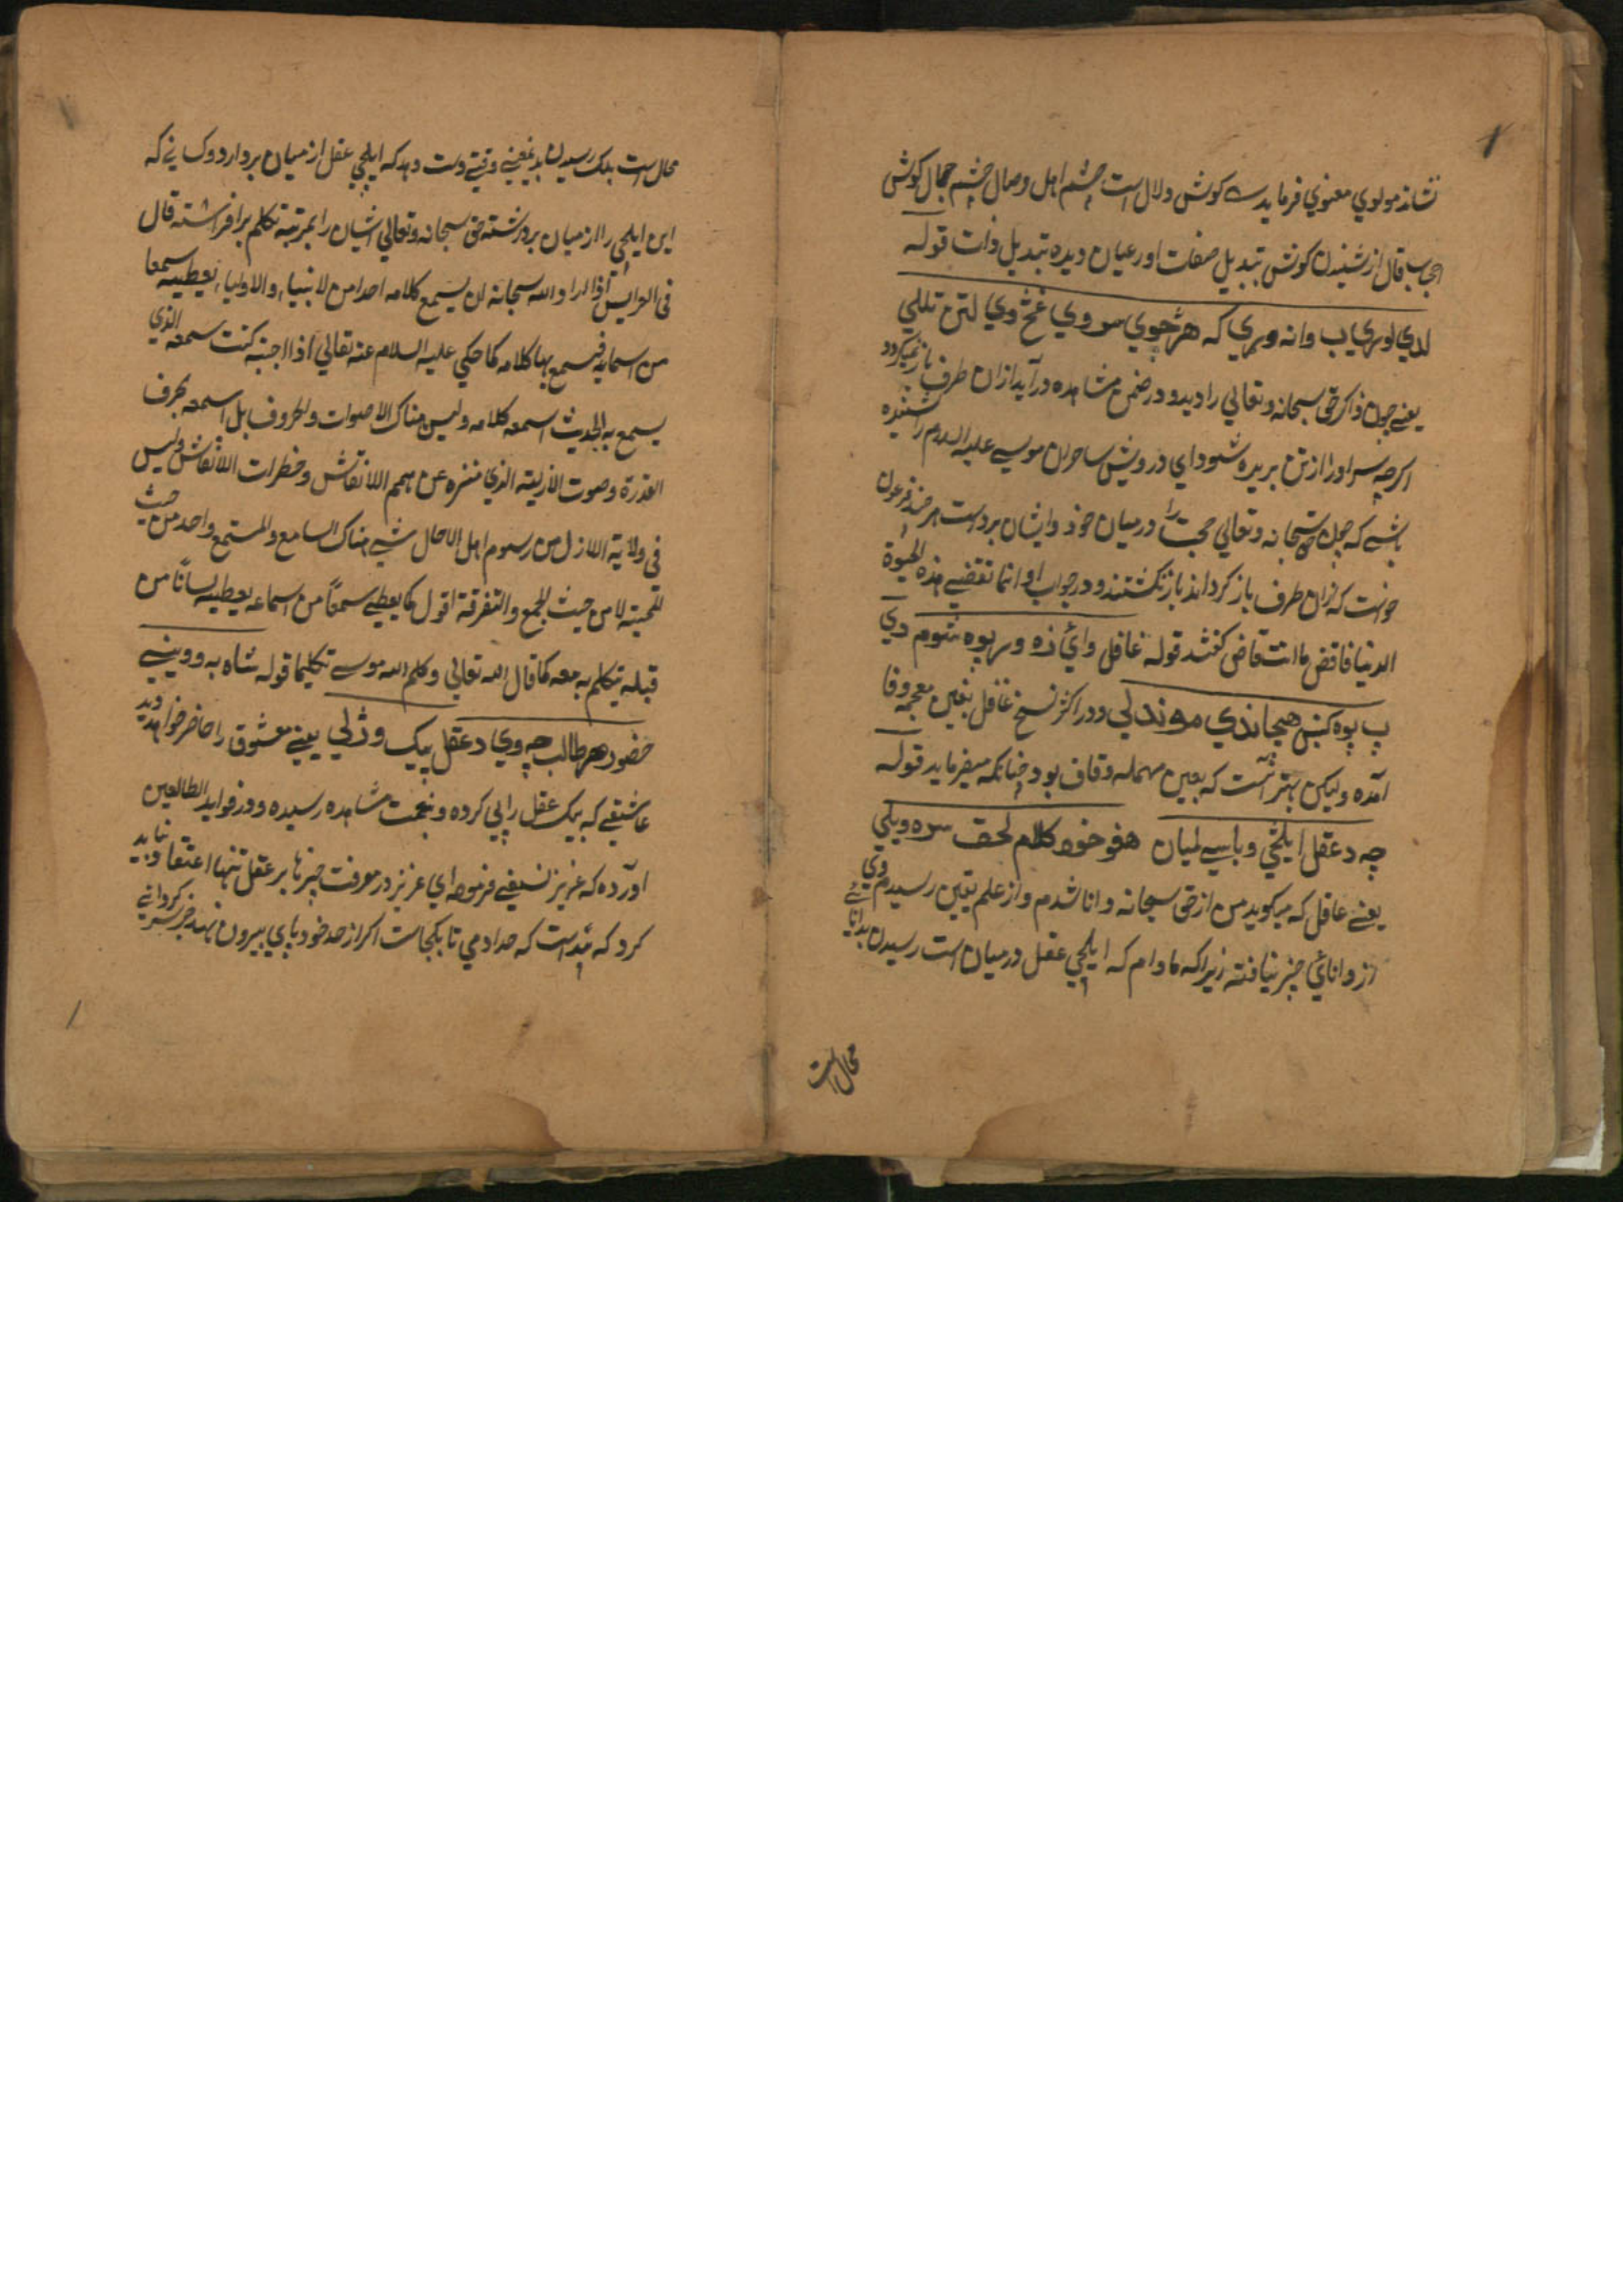 نشاند مولوي معنوي فرمايد کوش دلال است چشم اهل وصال چشم جمال کوش
اصحاب قال از شنیدن کوش تبدیل صفات اور عیان دیده تبدیل ذات قوله
لدي لوري باب وانه وړي که هر څوي سر وي غڅ وي لتن تللي
یعنے چون ذاکر حق سبحانه وتعالي را دید و در ضمن مشاهده درآید ازان طرف باز نمیکردد
اکرچه سر او را از تن بریده شود اي درویش ساحران موسے علیه السلام را شنیده
باشے که چون حق سبحانه وتعالي حجب را درمیان خود وایشان برداست هرچند فرعون
خواست که ازان طرف باز کرداند باز نکشتند و در جواب او انما تقضے هذه الحیوة
الدنیا فاقض ما انت قاض کفتند قوله غافل وائي زه ور پوه شوم دي
پ پوه کښ هیڅ اندي موندلي و در اکثر نسخ غافل بغین معجمه وفا
آمده ولیکن بهتر آنست که بعین مهمله وقاف بود چنانکه میفرماید قوله
چه د عقل ایلچي وباسي لمیان هغو خوړ کلام لحق سره ویلي
یعنے عاقل که میکوید من از حق سبحانه دانا شدم واز علم یقین رسیدم وي
از دانائي چیز نیافته زیراکه مادام که ایلچي عقل درمیان است رسیدن بدانائے
محال است
محال است بلکه رسیدن بدیقینے وقتے دست دهد که ایلچي عقل از میان بردارد وکسانے که
این ایلچي را از میان برداشته حق سبحانه وتعالي ایشان را بمرتبه تکلم برافراشته قال
في العرایس اذا اراد الله سبحانه ان یسمع کلامه احدا من الانبیاء والاولیاء یعطیه سمعا
من اسماعه فیسمع بها کلامه کما حکي علیه السلام عنه تعالي اذا احببته کنت سمعه الذي
یسمع به الحدیث اسمعه کلامه ولیس هناک الاصوات والحروف بل اسمعه بحرف
القدرة وصوت الازلیة الذي منزه عن همم الانقاش وخطرات الانقاش ولیس
في ولایة الازل من رسوم اهل الاحال شے هناک السامع والمستمع واحد من حیث
المحبة لا من حیث الجمع والتفرقة اقول کما یعطیے سمعاً من اسماعه یعطیه لساناً من
قبله یتکلم به معه کما قال الله تعالي وکلم الله موسے تکلیما قوله شاه به ووینے
حضور هر طالب چه وي د عقل پیک وژلي یعنے معشوق را حاضر خواهد دید
عاشقے که پیک عقل را پي کرده وبنعمت مشاهده رسیده و در فواید الطالعین
آورده که عزیز نسیفے فرموده اي عزیز در معرفت چیزها بر عقل تنها اعتقاد نباید
کرد که پیداست که حد آدمي تا بکجاست اکر از حد خود پاي بیرون نهد خرسر کردانے